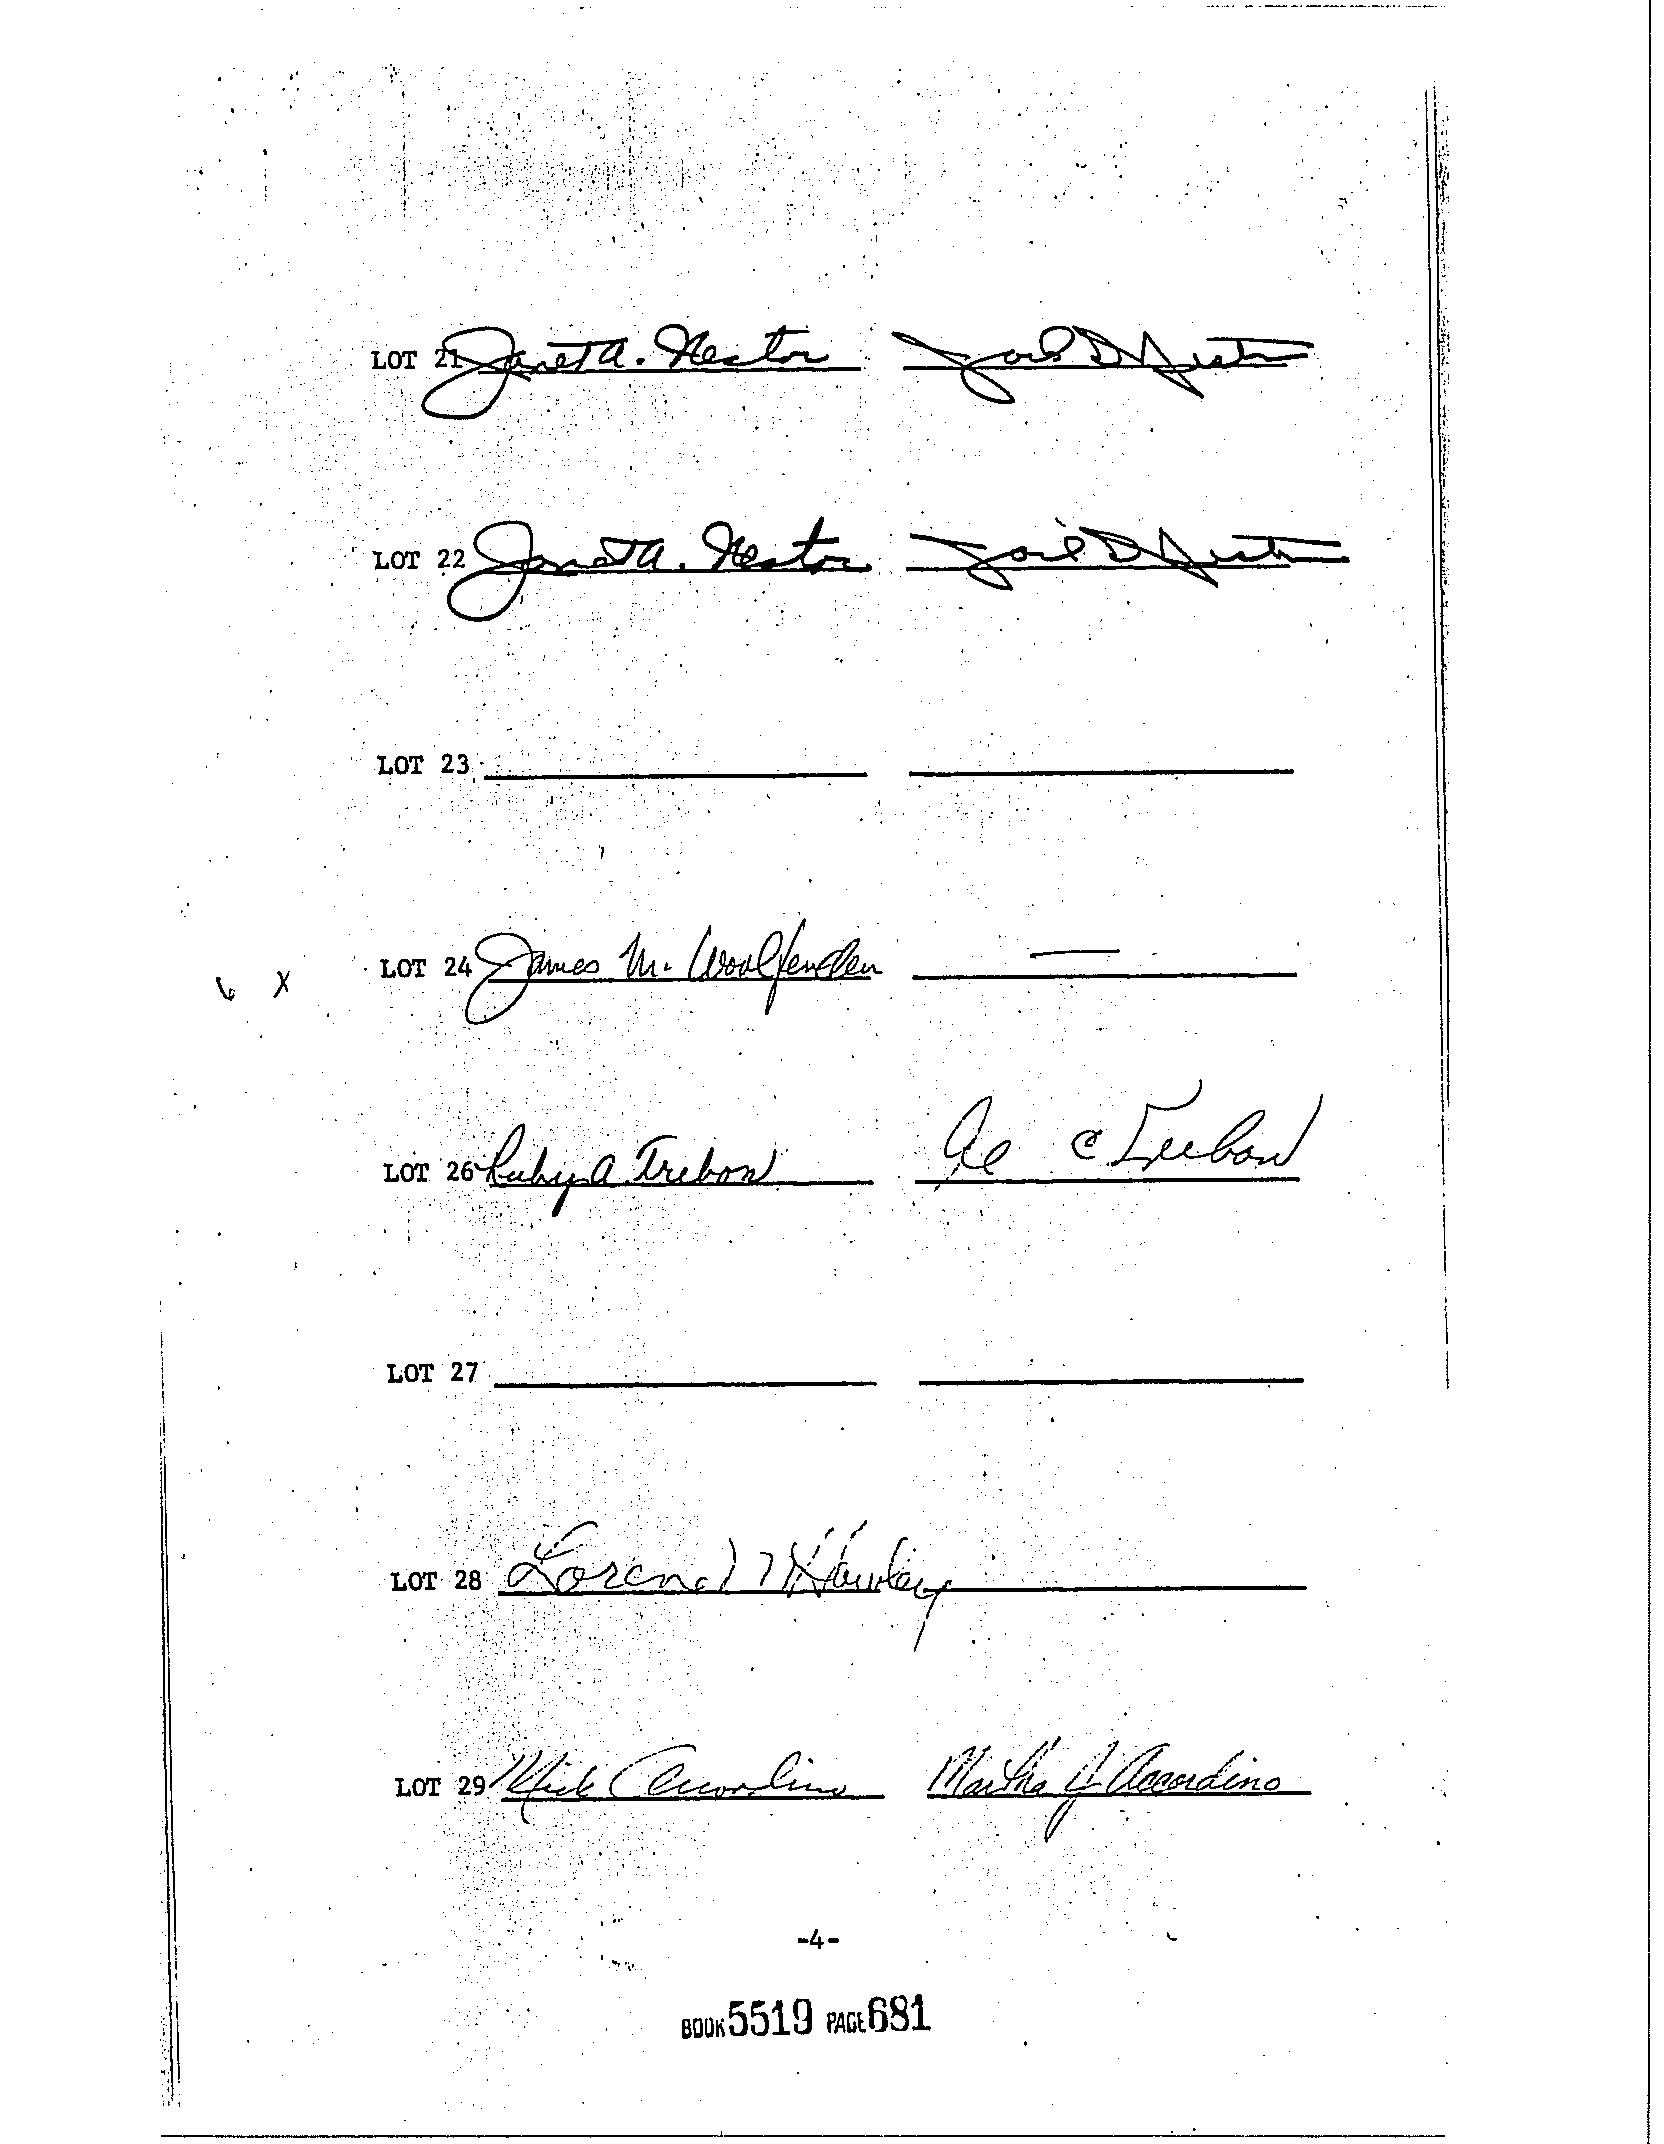 LOT 21 Janet A. Nestor
LOT 22 Janet A. Nestor
LOT 23
6 X LOT 24 James M. Woolfenden —
LOT 26 Ruby A Trebon Al C Trebon
LOT 27
LOT 28 Hawley
LOT 29 Mick Accordino Martha J. Accordino
-4-
BOOK 5519 PAGE 681